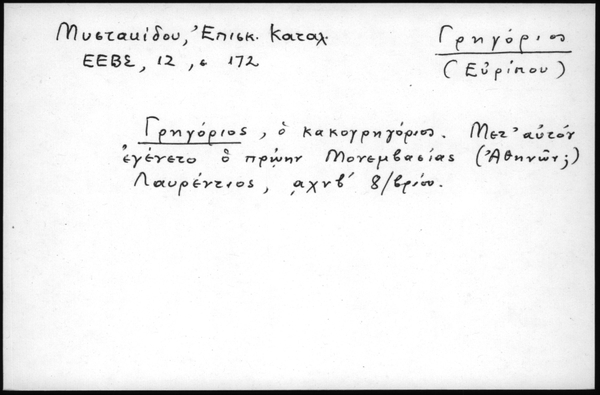 Μυστακίδου, Ἐπισκ. Καταλ.
ΕΕΒΣ, 12, σ 172
Γρηγόριος
(Εὐρίπου)
Γρηγόριος, ὁ κακογρηγόριος. Μετ' αὐτόν
ἐγένετο ὁ πρώην Μονεμβασίας (Ἀθηνῶν;)
Λαυρέντιος, ͵αχνβ´ 8/βρίου.